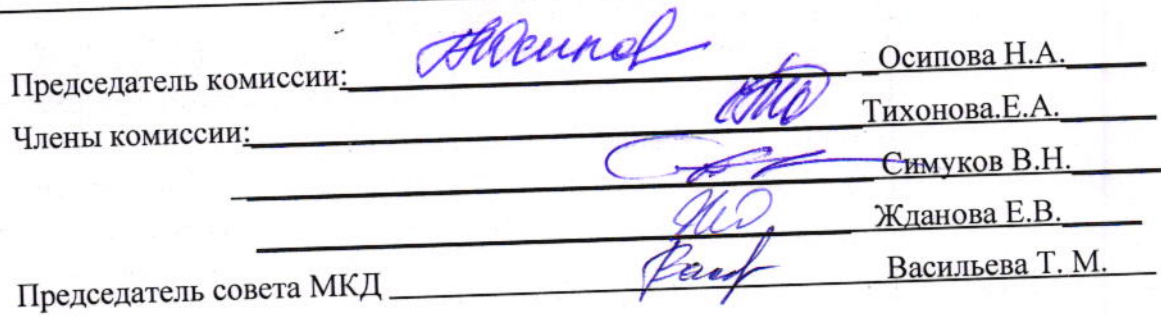 Председатель комиссии: Осипова Н.А.
Члены комиссии: Тихонова.Е.А.
Симуков В.Н.
Жданова Е.В.
Председатель совета МКД Васильева Т. М.